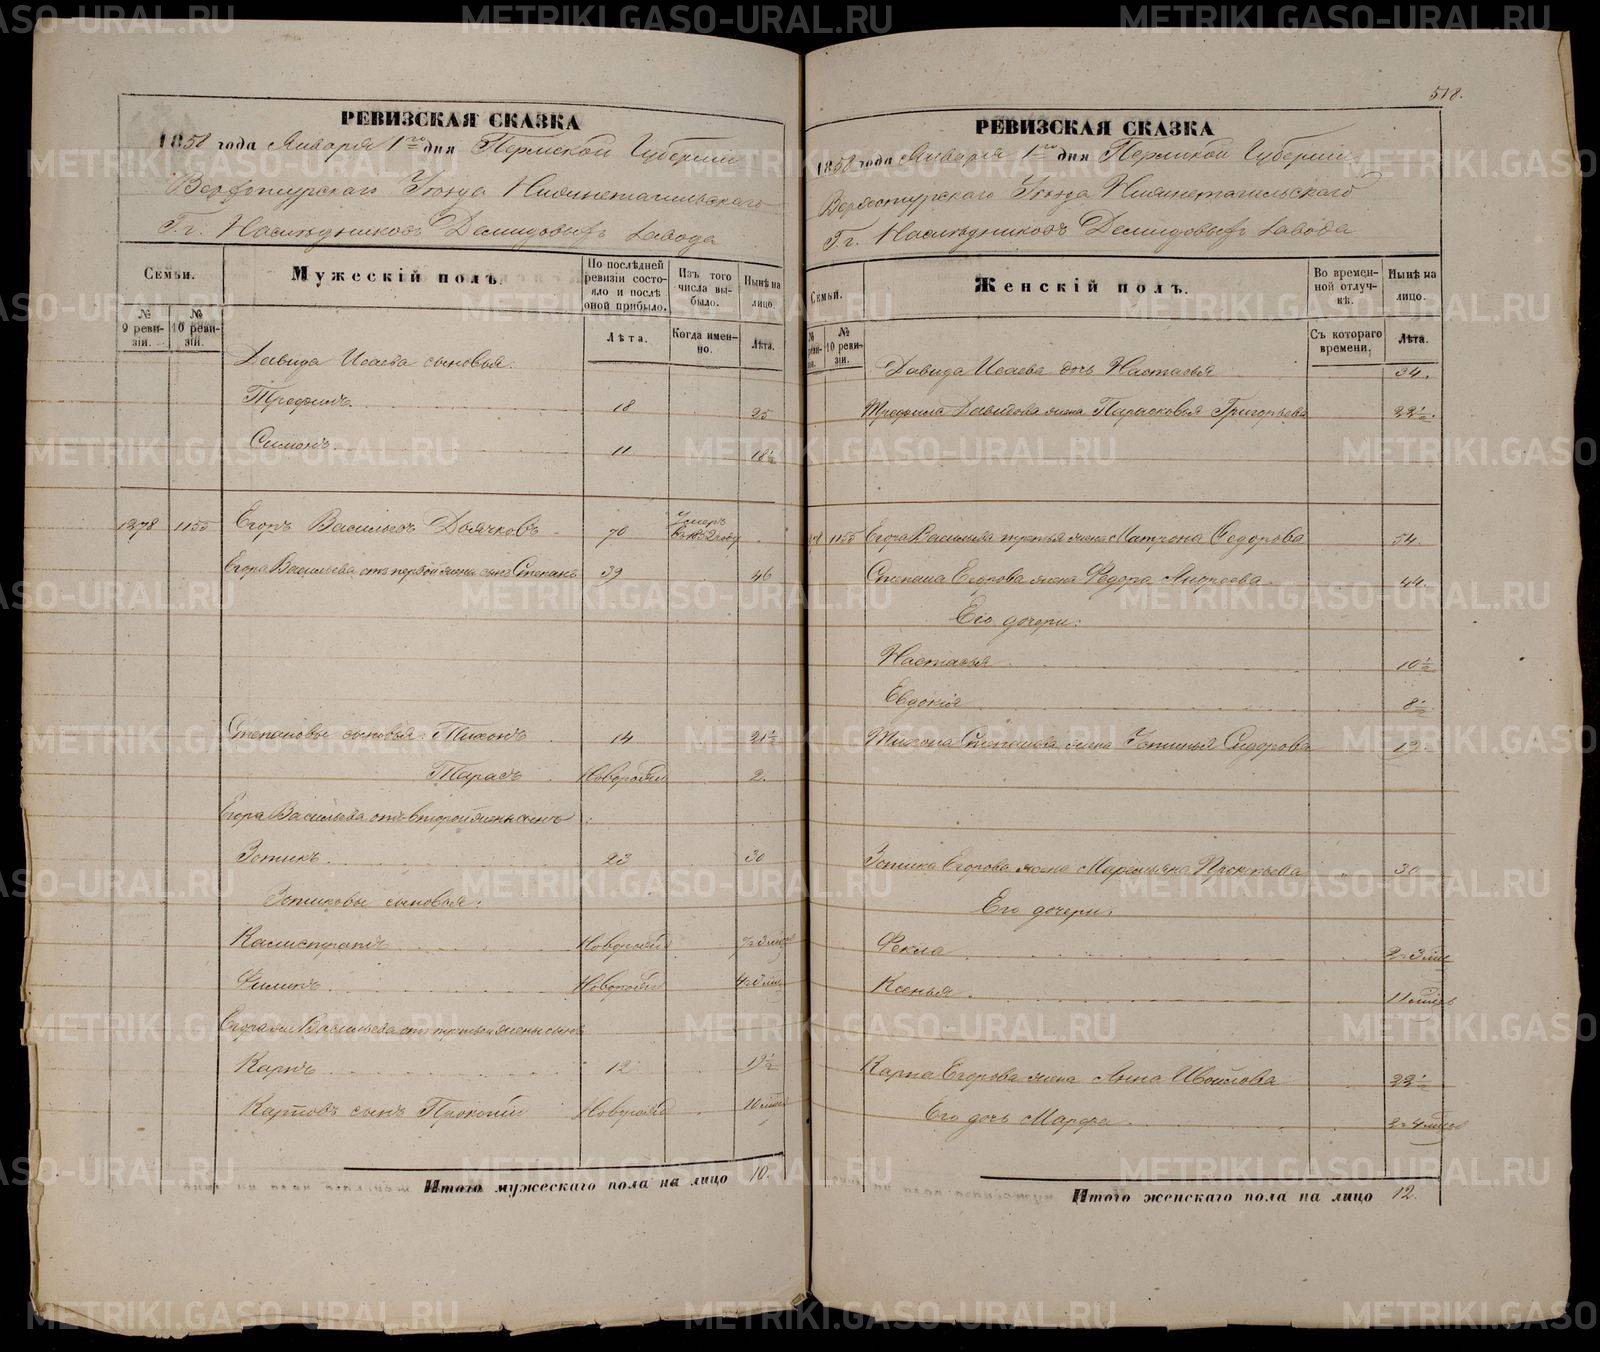 РЕВИЗСКАЯ СКАЗКА
1858 года Января 1го дня Пермской Губернии
Верхотурскаго Уезда Нижнетагильскаго
Г.г. Наследниковъ Демидовыхъ завода
Семьи.
№ 9 ревизіи.
№ 10 ревизіи.
Мужескій полъ.
По послѣдней ревизіи состояло и послѣ оной прибыло.
Лѣта.
Изъ того числа выбыло.
Когда именно.
Нынѣ на лицо.
Лѣта.
Давида Исаева сыновья:
Трефилъ 18 25
Симонъ 11 18½
1278 1155 Егоръ Васильевъ Дьячковъ 70 Умеръ въ 1852 году
Егора Васильева отъ первой жены сынъ Степанъ 39 46
Степановы сыновья: Тихонъ 14 21½
Тарасъ Новорожд 2.
Егора Васильева отъ второй жены сынъ:
Устикъ 23 30
Устиковы сыновья:
Калистратъ Новорожд
Филипъ Новорожд
Егора Васильева отъ третьей жены сынъ
Карпъ 12 19½
Карповъ сынъ Прокопій Новорожд 10 мцовъ
Итого мужескаго пола на лицо 10.
518.
РЕВИЗСКАЯ СКАЗКА
1858 года Января 1го дня Пермской Губерніи
Верхотурскаго Уезда Нижнетагильскаго
Г.г. Наследниковъ Демидовыхъ завода
Семьи.
№ ревизіи.
№ 10 ревизіи.
Женскій полъ.
Во временной отлучкѣ.
Съ котораго времени.
Нынѣ на лицо.
Лѣта.
Давида Исаева дочь Настасья 34.
Трефила Давидова жена Парасковья Григорьева 22½.
78 1155 Егора Васильева третья жена Матрона Федорова 54.
Степана Егорова жена Федора Андреева 44.
Его дочери:
Настасья 10½
Евдокія 8½
Тихона Степанова жена Устинья Сидорова 19.
Устика Егорова жена Маремьяна Прокпьева 30
Его дочери:
Фекла 2 3 мц
Ксенья 11 мцовъ
Карпа Егорова жена Анна Ивойлова 22½
Его дочь Марфа 2 4 мцовъ
Итого женскаго пола на лицо 12.
METRIKI.GASO-URAL.RU